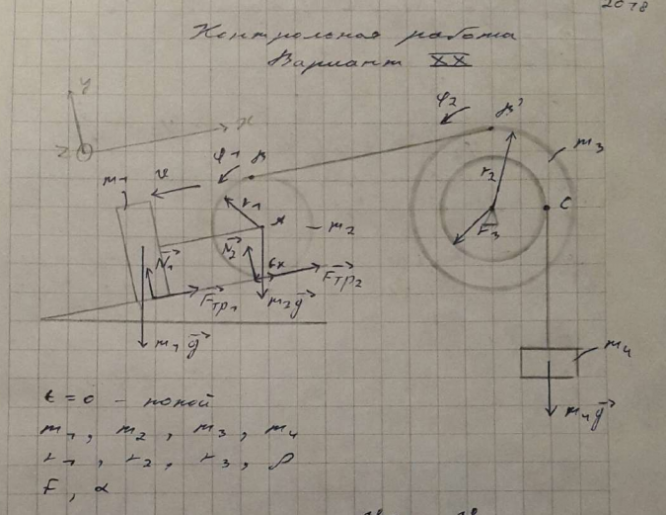 2018
Контрольная работа
Вариант XX
y
x
z
φ₂
B'
m₃
φ₁
B
m₁
v
r₁
r₂
A
m₂
C
F₃
N₁
N₂
Fтр₁
Fтр₂
m₂g
m₁g
m₄
m₄g
t = 0 – покой
m₁, m₂, m₃, m₄
r₁, r₂, r₃, ρ
F, α